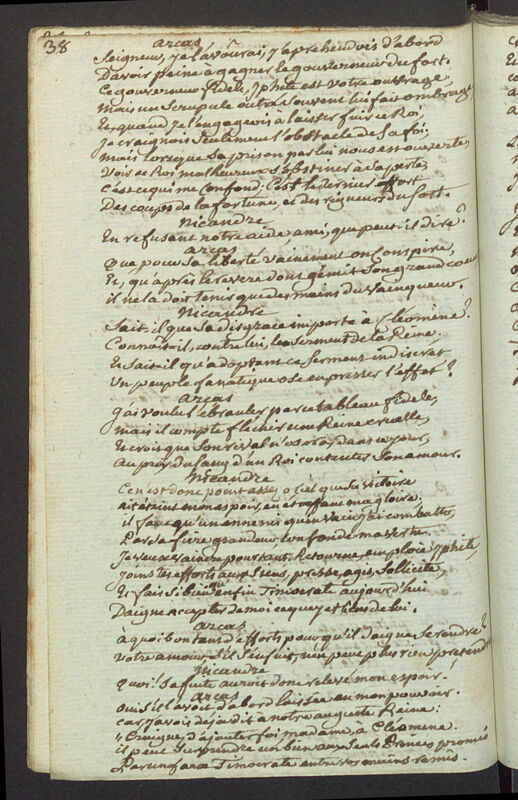 38
arcas
Seigneur, je l'avoûrai, j'aprehendois d'abord
D'avoir peine a gagner le gouverneur du fort.
Ce gouverneur fidele, Iphite est votre ouvrage,
Mais un scrupule outré souvent lui fait ombrage
En quand je l'engageois à laisser fuir ce Roi,
Je craignois seulement l'obstacle de sa foi;
Mais lorsque sa prison par lui nous est ouverte,
Voir ce Roi malheureux s'obstiner à sa perte,
C'est ce qui me confond; C'est le dernier effort
Des coups de la fortune, et des rigueurs du sort.
Nicandre
En refusant notre aide ami, que peut-il dire?
arcas
Que pour sa liberté vainement on conspire,
Et, qu'après le revers dont gémit son grand cœur
il ne la doit tenir que des mains du vainqueur.
Nicandre
Sait-il que sa disgrace importe à Cleomène?
Connoît-il, contre lui, le serment de la Reine,
Et sait-il qu'adoptant ce serment indiscret
Un peuple fanatique ose en presser l'effet?
arcas
J'ai voulu l'ebranler par ce tableau fidele,
Mais il compte flechir une Reine cruelle,
Et croit que son rival n'osera, dans ce jour,
Au prix du sang d'un Roi contenter son amour.
Nicandre
Ce n'est donc point assez, o ciel que sa victoire
ait éteint mon espoir, en étoffant ma gloire;
il faut qu'un ennemi qu'en vain j'ai combattu,
Par sa fière grandeur confonde ma vertu.
Je veux vaincre pourtant. Retourne, emploie Iphite,
Joins tes efforts aux siens, presse, agis, sollicite,
Et fais si bien qu'enfin Timocrate aujourd'hui
Daigne accepter de moi ce que j'ai tenu de lui.
arcas
a quoi bon tant d'efforts pour qu'il daigne se rendre?
Votre amour, s'il s'enfuit, n'a peut plus rien prétendre
Nicandre
Quoi! sa fuite auroit donc relevé mon espoir!
arcas
Oui s'il l'avoit d'abord laissée en mon pouvoir.
car, j'avois déja dit a notre auguste Reine:
"Craignez d'ajouter foi madame, à Cléomene:
il peut surprendre un bien aux seuls Princes promis
Par un faux Timocrate entre vos mains remis.